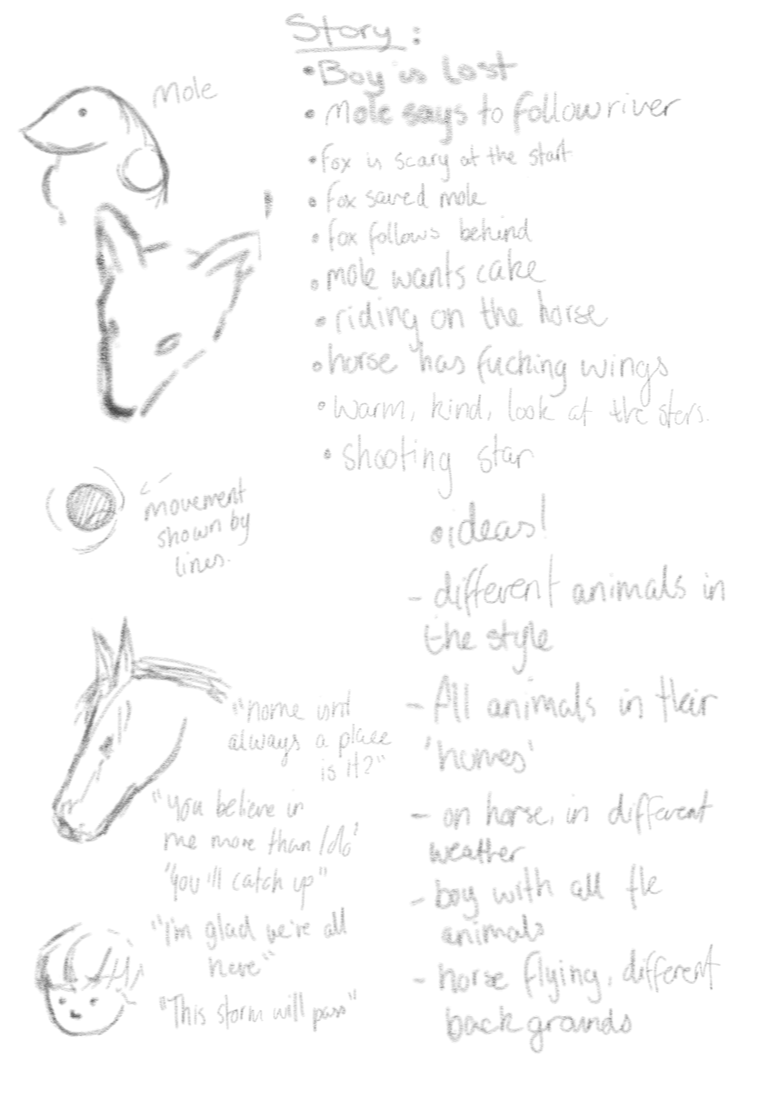 Story :
Mole
•Boy is lost
• Mole says to follow river
•fox is scary at the start
• fox saved mole
• fox follows behind
• mole wants cake
• riding on the horse
• horse has fucking wings
• warm, kind, look at the stars.
• shooting star
movement
shown by
lines.
• ideas!
- different animals in
the style
- All animals in their
'homes'
- on horse, in different
weather
- boy with all the
animals
- horse flying, different
backgrounds
"home isnt
always a place
is it?"
"you believe in
me more than I do'
'You'll catch up"
"I'm glad we're all
here"
"This storm will pass"